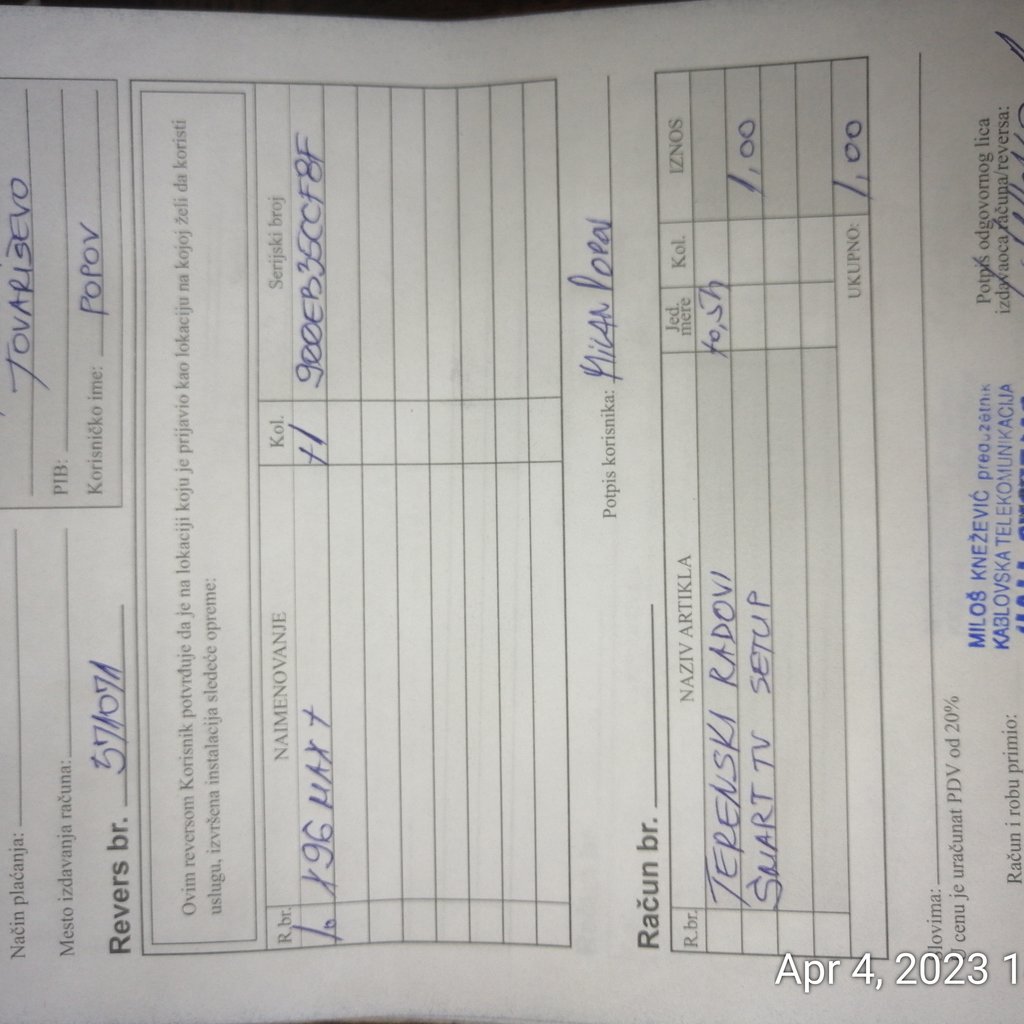 Način plaćanja:
Mesto izdavanja računa:
TOVARIŠEVO
PIB:
Korisničko ime: POPOV
Revers br. 571071
Ovim reversom Korisnik potvrđuje da je na lokaciji koju je prijavio kao lokaciju na kojoj želi da koristi
uslugu, izvršena instalacija sledeće opreme:
R.br. NAIMENOVANJE Kol. Serijski broj
1. X96 MAX + 1 900EB35CCF8F
Potpis korisnika: Milan Popov
Račun br.
R.br. NAZIV ARTIKLA Jed. mere Kol. IZNOS
TERENSKI RADOVI 0,5h 1,00
SMART TV SETUP
UKUPNO: 1,00
lovima:
U cenu je uračunat PDV od 20%
Račun i robu primio:
MILOŠ KNEŽEVIĆ preduzetnik
KABLOVSKA TELEKOMUNIKACIJA
Potpis odgovornog lica
izdavaoca računa/reversa:
Apr 4, 2023 1